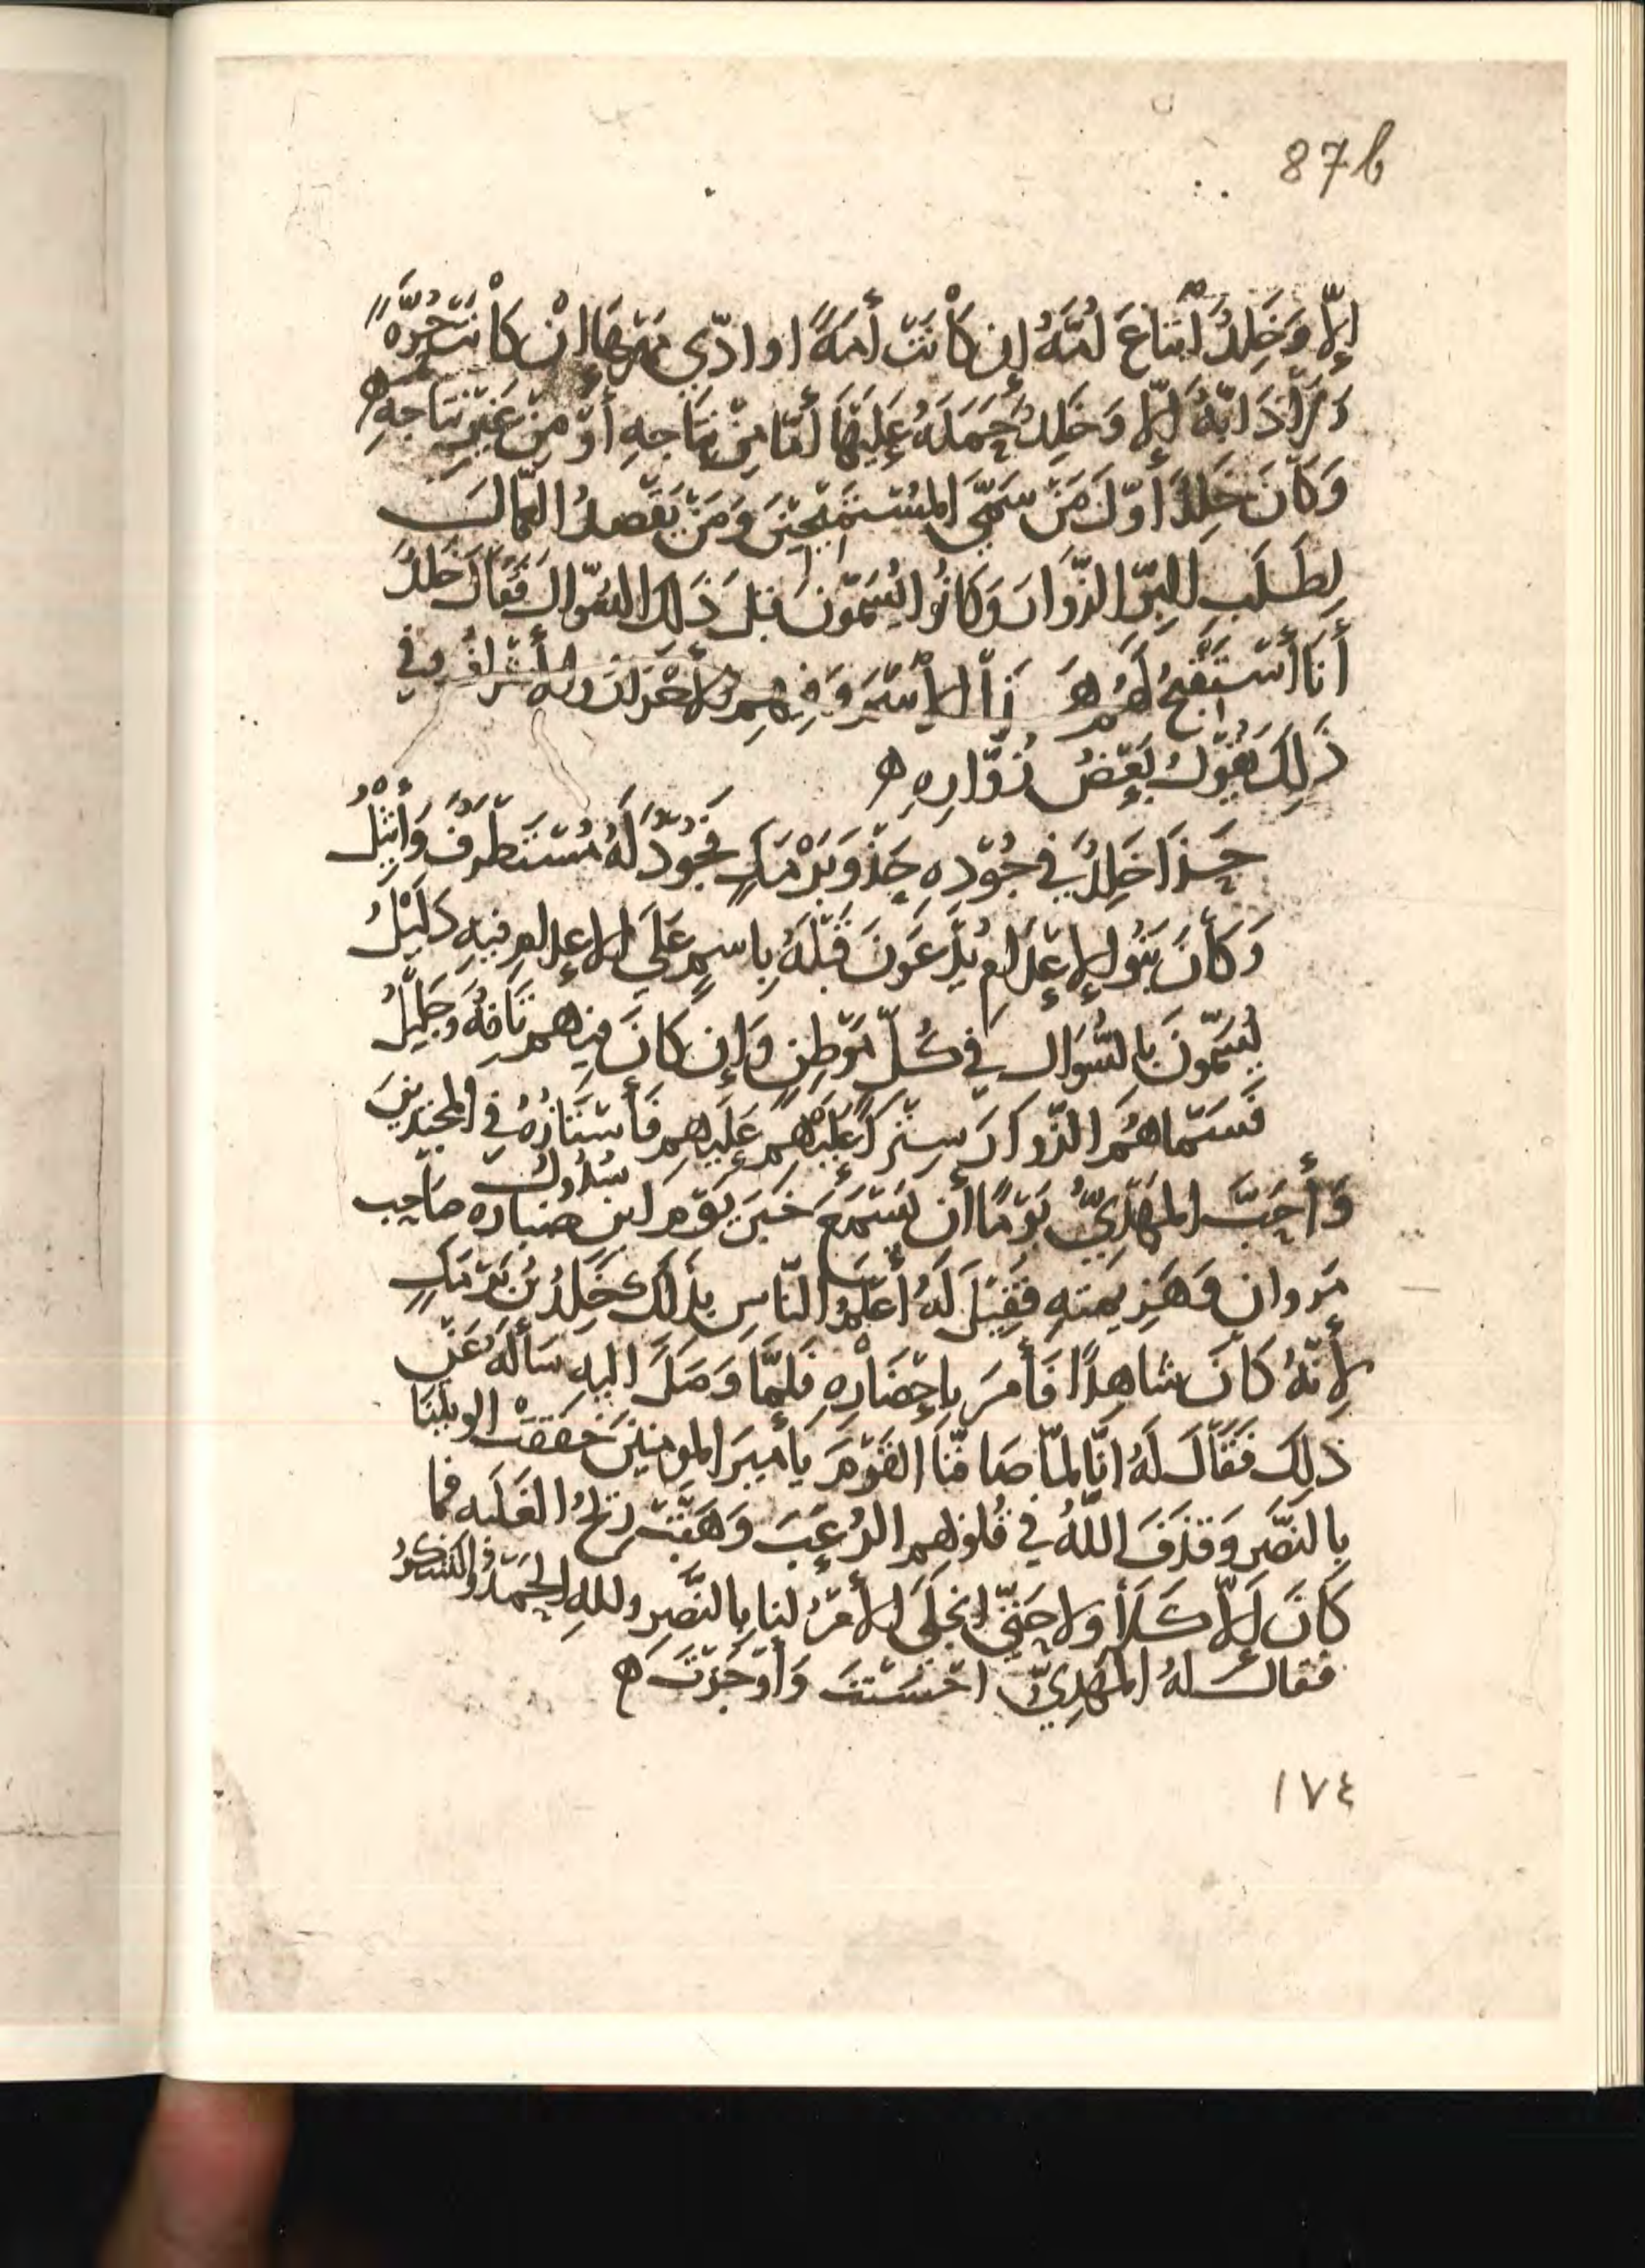 87b
إِلّا وَخَلِدُ ابْتاعَ أُمَّهُ إِن كَانَتْ أَمَةً او ادّى مَهرَهَا إنْ كَانَتْ حُرَّةً
وَلا دَابَّةُ إلّا وَخَلِدُ حَمَلَهُ عَلَيْهَا أمّا مِنْ نِتَاجِهِ أَوْ مِنْ غَيْرِ نِتَاجِهِ ه
وَكَانَ خَلِدُ أوّلَ مَنْ سَمَّى المُسْتَمِيحِينَ وَمَنْ يَقْصدُ العُمّالَ
لِطَلَبِ البِرّ الزّوارَ وَكَانُوا يُسَمّونَ قبلَ ذَلِكَ السُّوّالَ فَقَالَ خَلِدُ
أَنَا أسْتَقْبِحُ لَهُمْ هَذا الاسْمَ وَفِيهِم الاحْرَارُ والأشْرَافُ وفي
ذَلِكَ يَقُولُ بَعْضُ زُوّارِهِ ه
حَذَا خَلِدُ في جُوْدِهِ حَذْوَ بَرْمَكٍ فَجُوْدٌ لَهُ مُسْتَطْرَفٌ وَأَثِيْلُ
وَكَانَ بَنُو الإعْدَامِ يُدْعَونَ قَبْلَهُ بِاسمٍ عَلَى الاعدامِ فيهِ دَلِيْلُ
يُسَمّونَ بِالسُّوّالِ في كُلّ مَوْطِنٍ وَإن كَانَ فيهم نَافِهٌ وَجَلِيْلُ
فَسَمّاهُمُ الزّوارَ سِتْراً عَلَيْهِم فَأَسْتَارُهُ في المجتدينَ
سُدُولُ
وَأَحَبَّ المَهْدِيُّ يَوْمًا أن يَسْمَعَ خَبَرَ يَوْم ابن ضباره صَاحِب
مَروان وَهَزِيمتهِ فَقِيْلَ لَهُ أعْلَمُ النّاسِ بِذلكَ خَلِدُ بنُ بَرْمَكٍ
لأنّهُ كَانَ شاهِدًا فَأمَرَ بِإحْضَارِهِ فَلمَّا وَصَلَ اليهِ سَألَهُ عَنْ
ذلِكَ فَقَالَ لَهُ انّا لمّا صَافّنَا القَوْمَ يا أمِيرَ المومنينَ خفقَتْ الويتُنَا
بِالنّصْرِ وَقذَفَ اللهُ في قُلُوبِهِم الرُعْبَ وَهَبَّتْ رِيحُ الغَلَبه فما
كَانَ إلّا كَلَا ولا حَتّى انجَلَى الأمْرُ لنا بِالنّصْرِ وللهِ الحَمْدُ والشكرُ
فقالَ لهُ المَهْدِيّ احْسَنْتَ وَأوْجَزْتَ ه
١٧٤